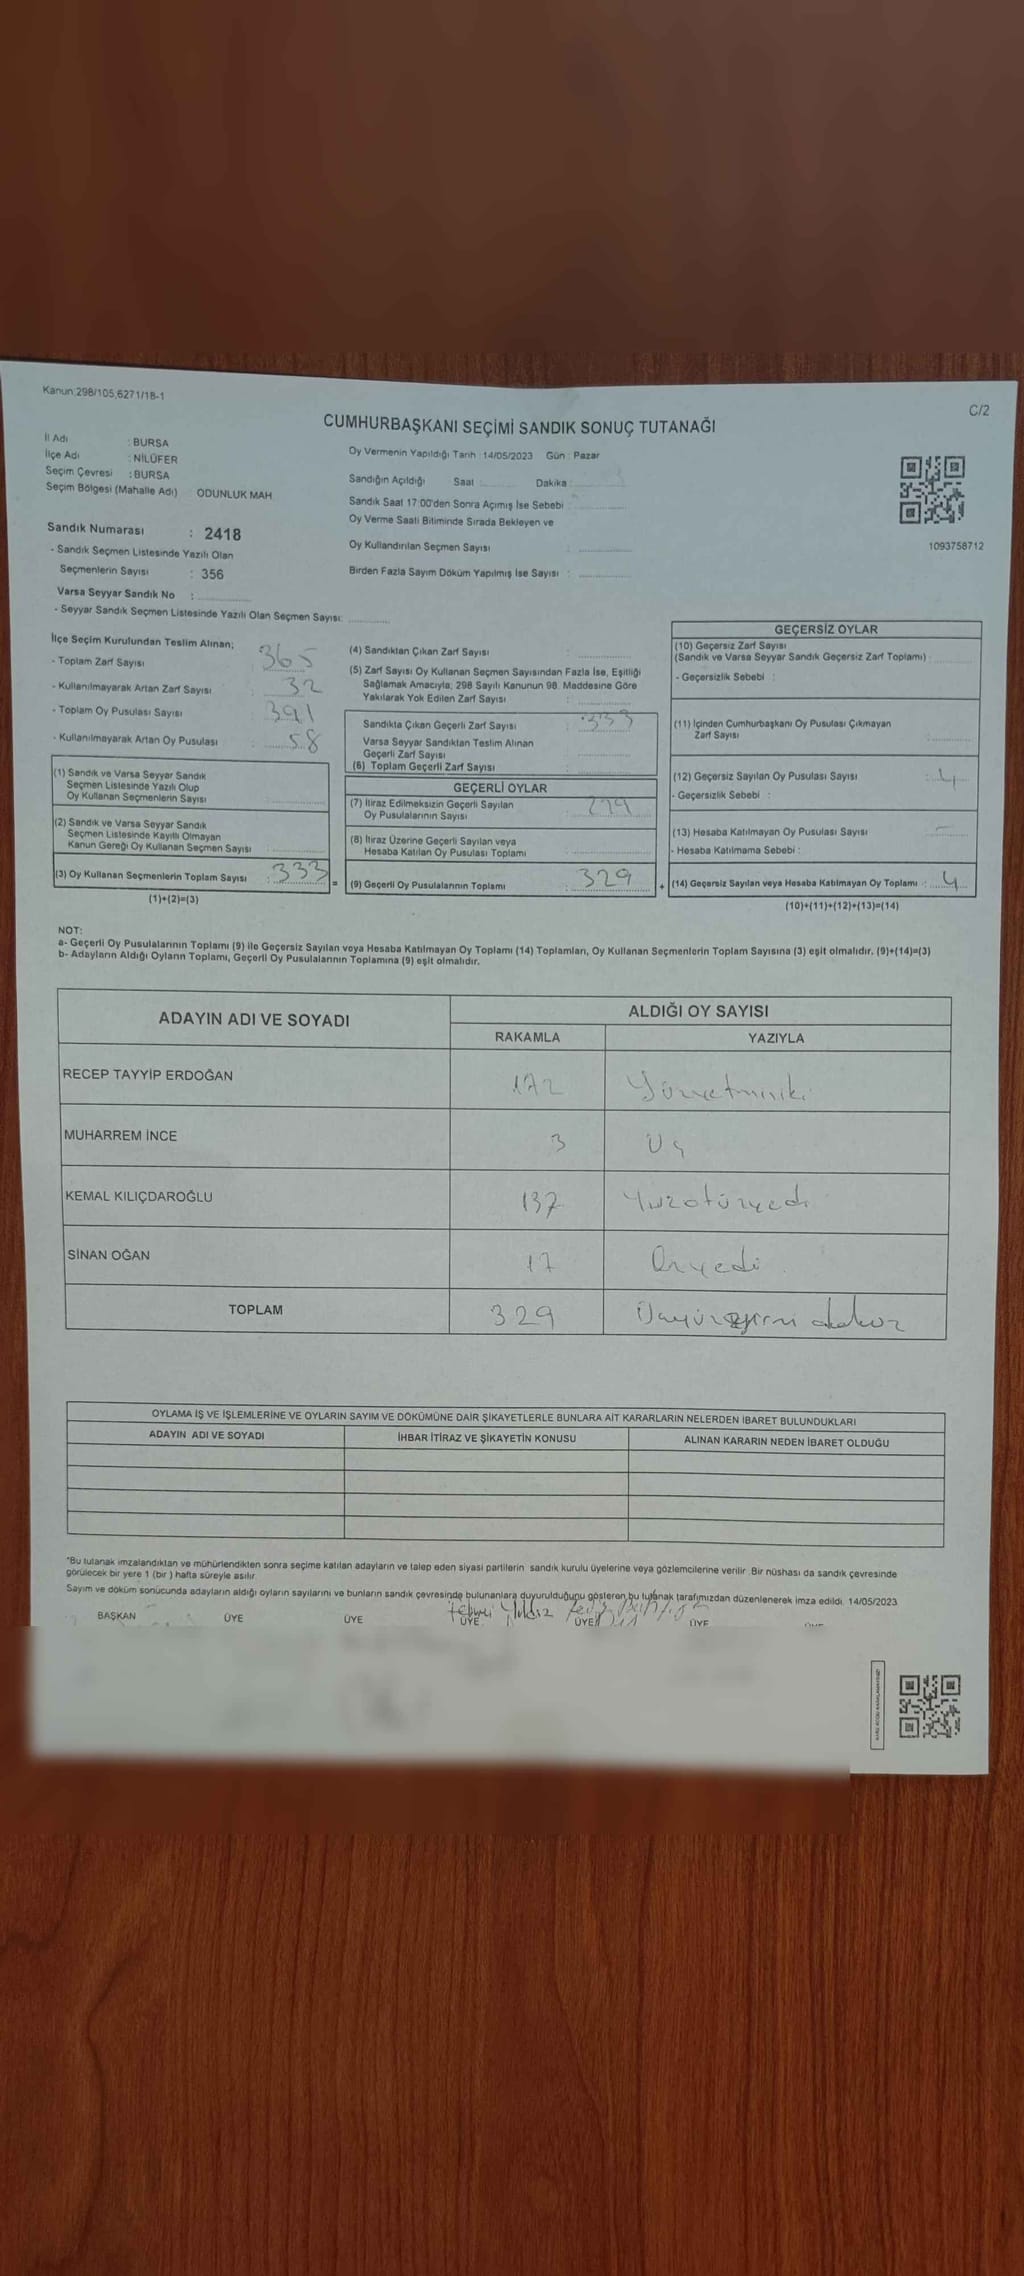 Kanun;298/105,6271/18-1
C/2
CUMHURBAŞKANI SEÇİMİ SANDIK SONUÇ TUTANAĞI
İl Adı : BURSA
İlçe Adı : NİLÜFER
Seçim Çevresi : BURSA
Seçim Bölgesi (Mahalle Adı) ODUNLUK MAH
Sandık Numarası : 2418
- Sandık Seçmen Listesinde Yazılı Olan
Seçmenlerin Sayısı : 356
Varsa Seyyar Sandık No :
- Seyyar Sandık Seçmen Listesinde Yazılı Olan Seçmen Sayısı:
Oy Vermenin Yapıldığı Tarih : 14/05/2023 Gün : Pazar
Sandığın Açıldığı Saat Dakika :
Sandık Saat 17:00'den Sonra Açımış İse Sebebi :
Oy Verme Saati Bitiminde Sırada Bekleyen ve
Oy Kullandırılan Seçmen Sayısı :
Birden Fazla Sayım Döküm Yapılmış İse Sayısı :
1093758712
İlçe Seçim Kurulundan Teslim Alınan;
- Toplam Zarf Sayısı : 365
- Kullanılmayarak Artan Zarf Sayısı : 32
- Toplam Oy Pusulası Sayısı : 391
- Kullanılmayarak Artan Oy Pusulası : 58
(1) Sandık ve Varsa Seyyar Sandık
Seçmen Listesinde Yazılı Olup
Oy Kullanan Seçmenlerin Sayısı :
(2) Sandık ve Varsa Seyyar Sandık
Seçmen Listesinde Kayıtlı Olmayan
Kanun Gereği Oy Kullanan Seçmen Sayısı :
(3) Oy Kullanan Seçmenlerin Toplam Sayısı : 333
(1)+(2)=(3)
(4) Sandıktan Çıkan Zarf Sayısı :
(5) Zarf Sayısı Oy Kullanan Seçmen Sayısından Fazla İse, Eşitliği
Sağlamak Amacıyla; 298 Sayılı Kanunun 98. Maddesine Göre
Yakılarak Yok Edilen Zarf Sayısı :
Sandıkta Çıkan Geçerli Zarf Sayısı : 333
Varsa Seyyar Sandıktan Teslim Alınan
Geçerli Zarf Sayısı :
(6) Toplam Geçerli Zarf Sayısı :
GEÇERLİ OYLAR
(7) İtiraz Edilmeksizin Geçerli Sayılan
Oy Pusulalarının Sayısı :
(8) İtiraz Üzerine Geçerli Sayılan veya
Hesaba Katılan Oy Pusulası Toplamı :
= (9) Geçerli Oy Pusulalarının Toplamı : 329
GEÇERSİZ OYLAR
(10) Geçersiz Zarf Sayısı
(Sandık ve Varsa Seyyar Sandık Geçersiz Zarf Toplamı) :
- Geçersizlik Sebebi :
(11) İçinden Cumhurbaşkanı Oy Pusulası Çıkmayan
Zarf Sayısı :
(12) Geçersiz Sayılan Oy Pusulası Sayısı : 4
- Geçersizlik Sebebi :
(13) Hesaba Katılmayan Oy Pusulası Sayısı : -
- Hesaba Katılmama Sebebi :
+ (14) Geçersiz Sayılan veya Hesaba Katılmayan Oy Toplamı : 4
(10)+(11)+(12)+(13)=(14)
NOT:
a- Geçerli Oy Pusulalarının Toplamı (9) ile Geçersiz Sayılan veya Hesaba Katılmayan Oy Toplamı (14) Toplamları, Oy Kullanan Seçmenlerin Toplam Sayısına (3) eşit olmalıdır. (9)+(14)=(3)
b- Adayların Aldığı Oyların Toplamı, Geçerli Oy Pusulalarının Toplamına (9) eşit olmalıdır.
ADAYIN ADI VE SOYADI
ALDIĞI OY SAYISI
RAKAMLA YAZIYLA
RECEP TAYYİP ERDOĞAN 172 Yüzyetmişiki
MUHARREM İNCE 3 Üç
KEMAL KILIÇDAROĞLU 137 Yüzotuzyedi
SİNAN OĞAN 17 Onyedi
TOPLAM 329 Üçyüzyirmi dokuz
OYLAMA İŞ VE İŞLEMLERİNE VE OYLARIN SAYIM VE DÖKÜMÜNE DAİR ŞİKAYETLERLE BUNLARA AİT KARARLARIN NELERDEN İBARET BULUNDUKLARI
ADAYIN ADI VE SOYADI İHBAR İTİRAZ VE ŞİKAYETİN KONUSU ALINAN KARARIN NEDEN İBARET OLDUĞU
"Bu tutanak imzalandıktan ve mühürlendikten sonra seçime katılan adayların ve talep eden siyasi partilerin sandık kurulu üyelerine veya gözlemcilerine verilir. Bir nüshası da sandık çevresinde
görülecek bir yere 1 (bir ) hafta süreyle asılır.
Sayım ve döküm sonucunda adayların aldığı oyların sayılarını ve bunların sandık çevresinde bulunanlara duyurulduğunu gösteren bu tutanak tarafımızdan düzenlenerek imza edildi. 14/05/2023
Yıldız
BAŞKAN ÜYE ÜYE ÜYE ÜYE ÜYE